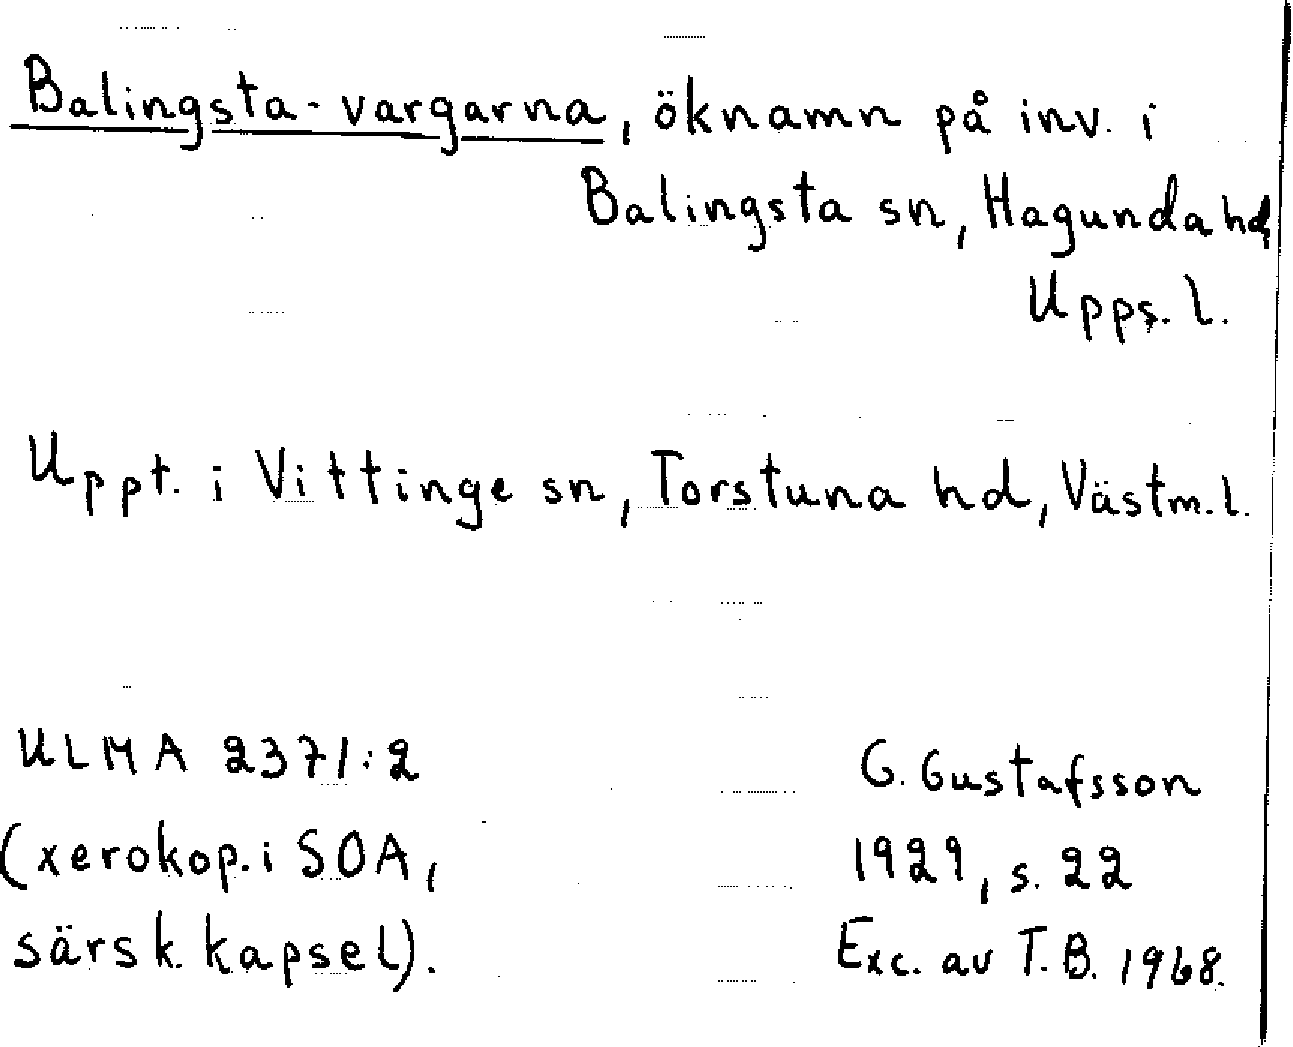 Balingsta-vargarna, öknamn på inv. i
Balingsta sn, Hagunda hd,
Upps. l.
Uppt. i Vittinge sn, Torstuna hd, Västm. l.
ULMA 2371:2
(xerokop. i SOA,
särsk. kapsel).
G. Gustafsson
1929, s. 22
Exc. av T. B. 1968.